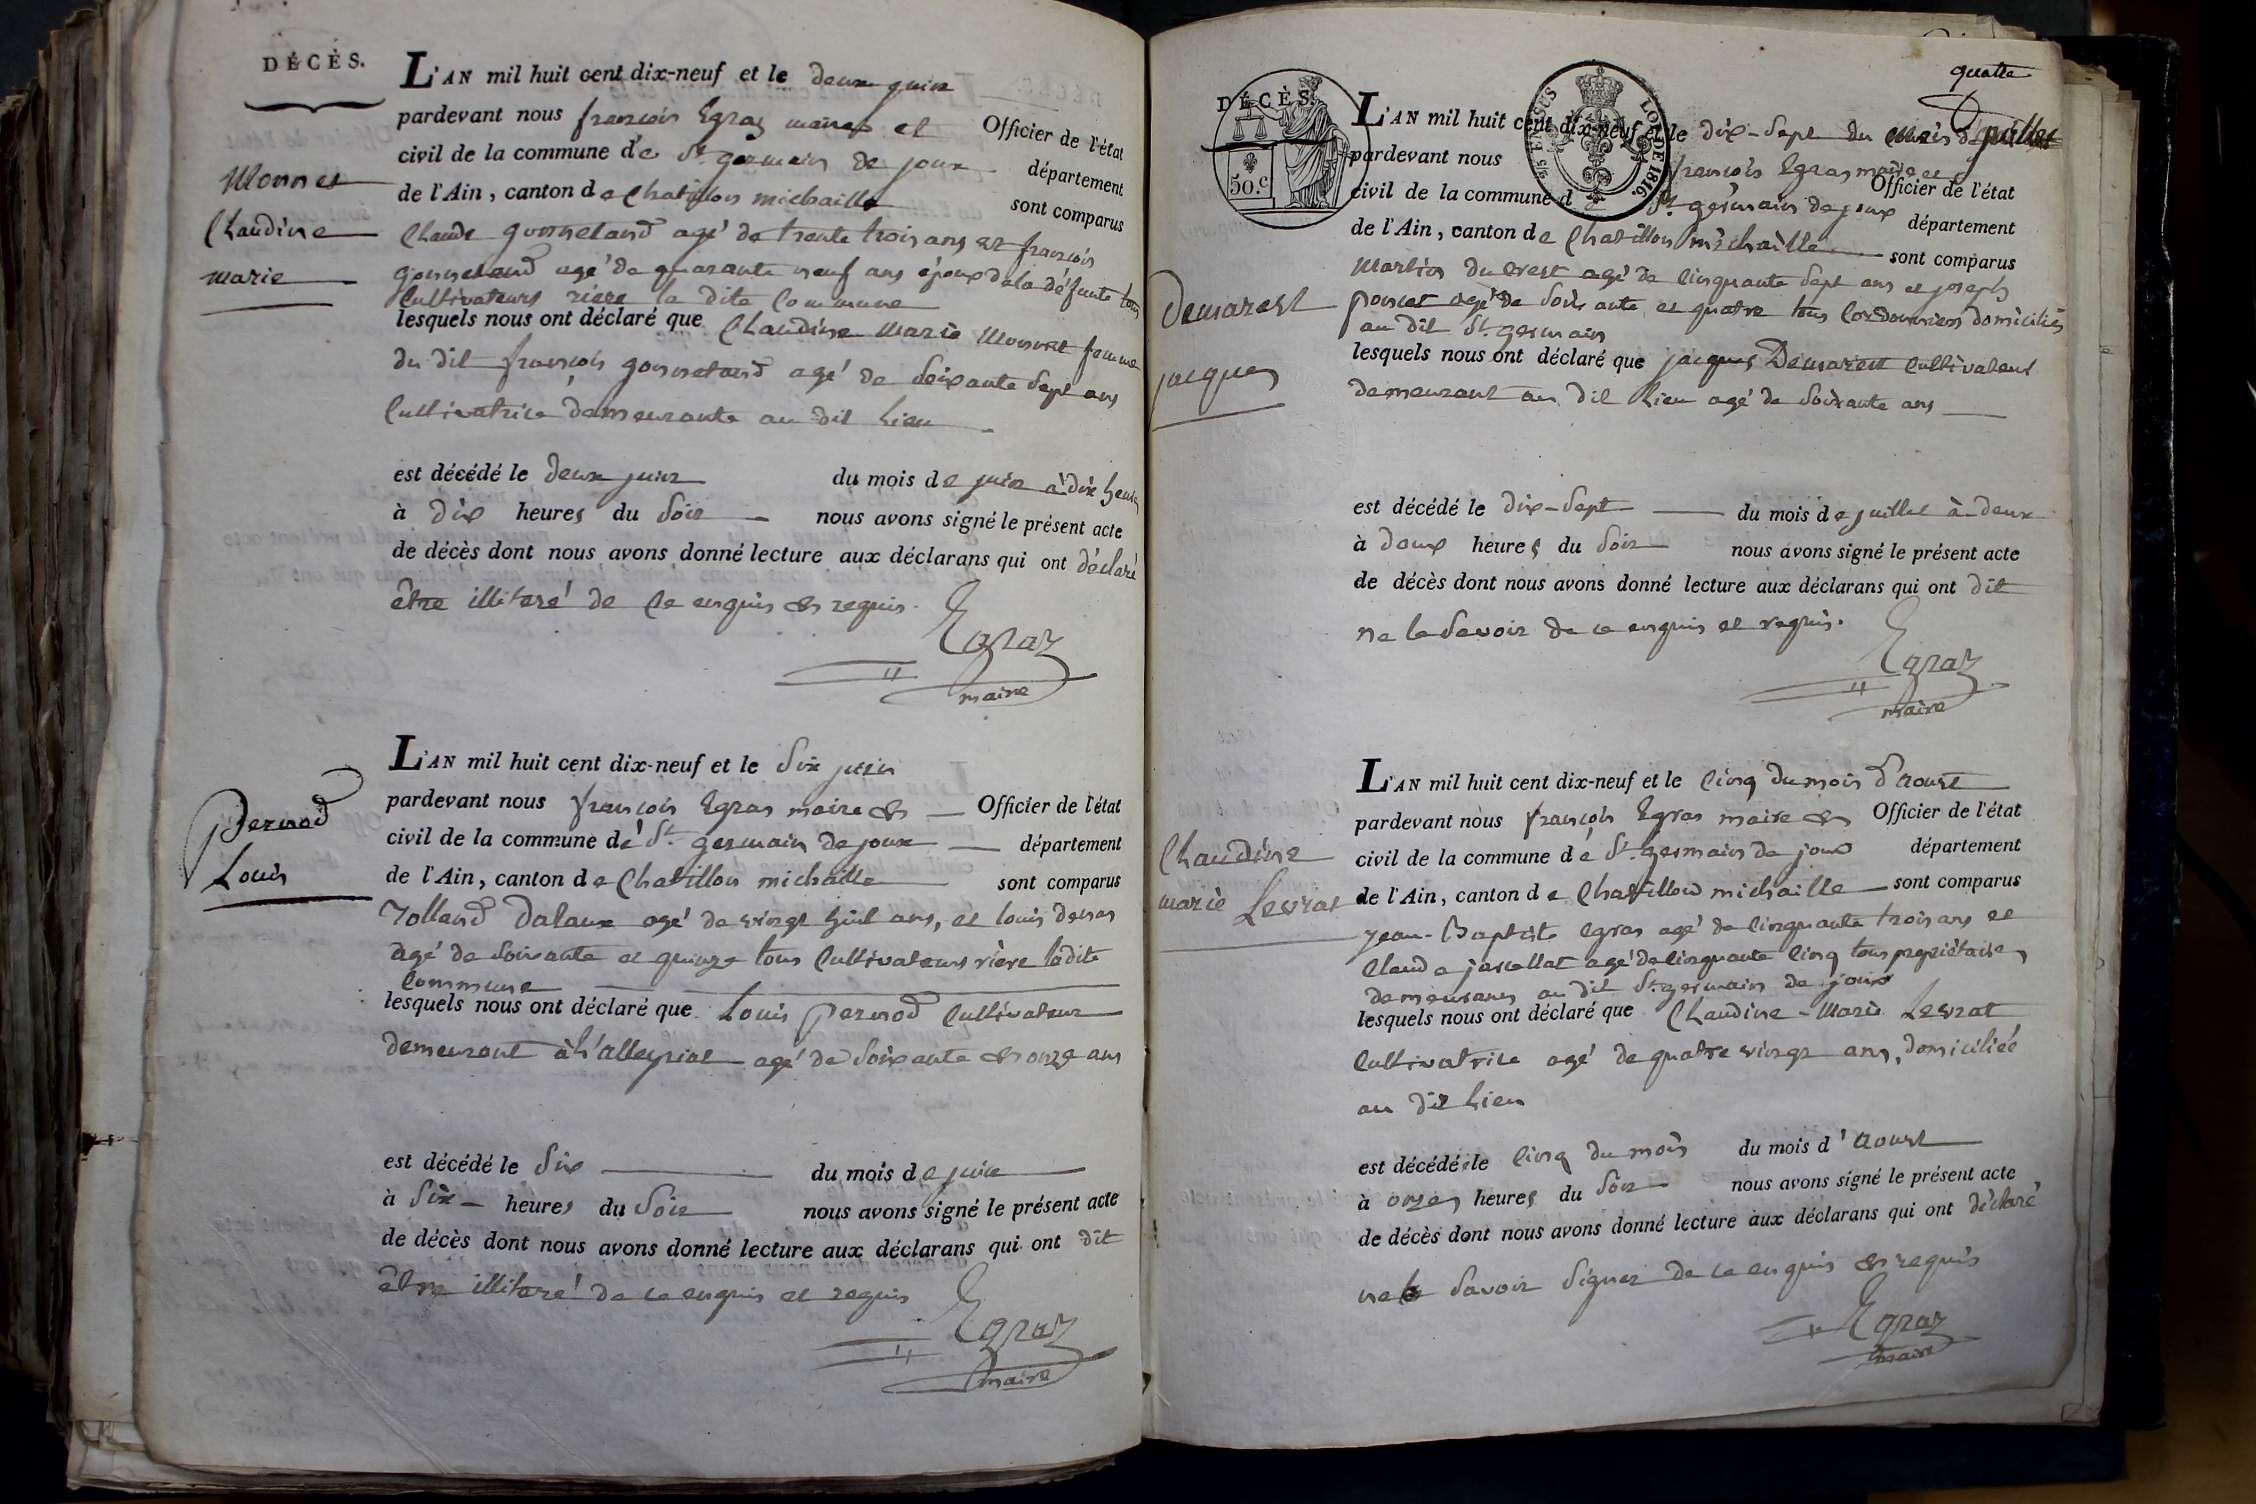 DÉCÈS.
L'AN mil huit cent dix-neuf et le deux juin
pardevant nous françois Egraz maire et Officier de l'état
civil de la commune de St. germain de joux département
de l'Ain, canton de Chatillon michaille sont comparus
Claude gonnetand agé de trente trois ans et françois
gonnetand agé de quarante neuf ans époux de la défunte tous
Cultivateurs riere la dite Commune
lesquels nous ont déclaré que Claudine Marie Monnet femme
du dit françois gonnetand agé de Soixante Sept ans
Cultivatrice demeurante au dit Lieu
est décédé le deux juin du mois de juin à dix heures
à dix heures du Soir nous avons signé le présent acte
de décès dont nous avons donné lecture aux déclarans qui ont déclaré
être illiteré de ce enquis et requis.
Egraz
maire
Monnet
Claudine
marie
L'AN mil huit cent dix-neuf et le Six juin
pardevant nous françois Egras maire et Officier de l'état
civil de la commune de St. germain de joux département
de l'Ain, canton de Chatillon michaille sont comparus
Rolland Dalaux agé de vingt huit ans, et louis
agé de Soixante et quinze tous Cultivateurs rière ladite
Commune
lesquels nous ont déclaré que Louis pernod Cultivateur
demeurant à L'alleyriat agé de Soixante et onze ans
est décédé le Six du mois de juin
à Six heures du Soir nous avons signé le présent acte
de décès dont nous avons donné lecture aux déclarans qui ont dit
être illiteré de ce enquis et requis
Egraz
maire
Pernod
Louis
quatre
DÉCÈS.
50.c
75 EN SUS
LOI DE 1816.
L'AN mil huit cent dix-neuf et le dix-Sept du mois de juillet
pardevant nous françois Egras maire et Officier de l'état
civil de la commune d St. germain de joux département
de l'Ain, canton de Chatillon michaille sont comparus
Martin ducrest agé de Cinquante Sept ans et joseph
poncet agé de Soixante et quatre tous Cordonniers domiciliés
au dit St. germain
lesquels nous ont déclaré que jacques Demarest Cultivateur
demeurant au dit Lieu agé de Soixante ans
est décédé le dix-Sept du mois de juillet à deux
à deux heures du Soir nous avons signé le présent acte
de décès dont nous avons donné lecture aux déclarans qui ont dit
ne le Savoir de ce enquis et requis.
Egraz
maire
Demarest
jacques
L'AN mil huit cent dix-neuf et le Cinq du mois d'aoust
pardevant nous françois Egras maire et Officier de l'état
civil de la commune de St. germain de joux département
de l'Ain, canton de Chatillon michaille sont comparus
jean-Baptiste egras agé de Cinquante trois ans et
Claude agé de Cinquante Cinq tous propriétaires
demeurans au dit St. germain de joux
lesquels nous ont déclaré que Claudine-Marie Levrat
Cultivatrice agé de quatre vingt ans, domiciliée
au dit Lieu
est décédé le Cinq du mois du mois d'aoust
à onze heures du Soir nous avons signé le présent acte
de décès dont nous avons donné lecture aux déclarans qui ont déclaré
ne Savoir Signer de ce enquis et requis
Egraz
maire
Claudine
marie Levrat